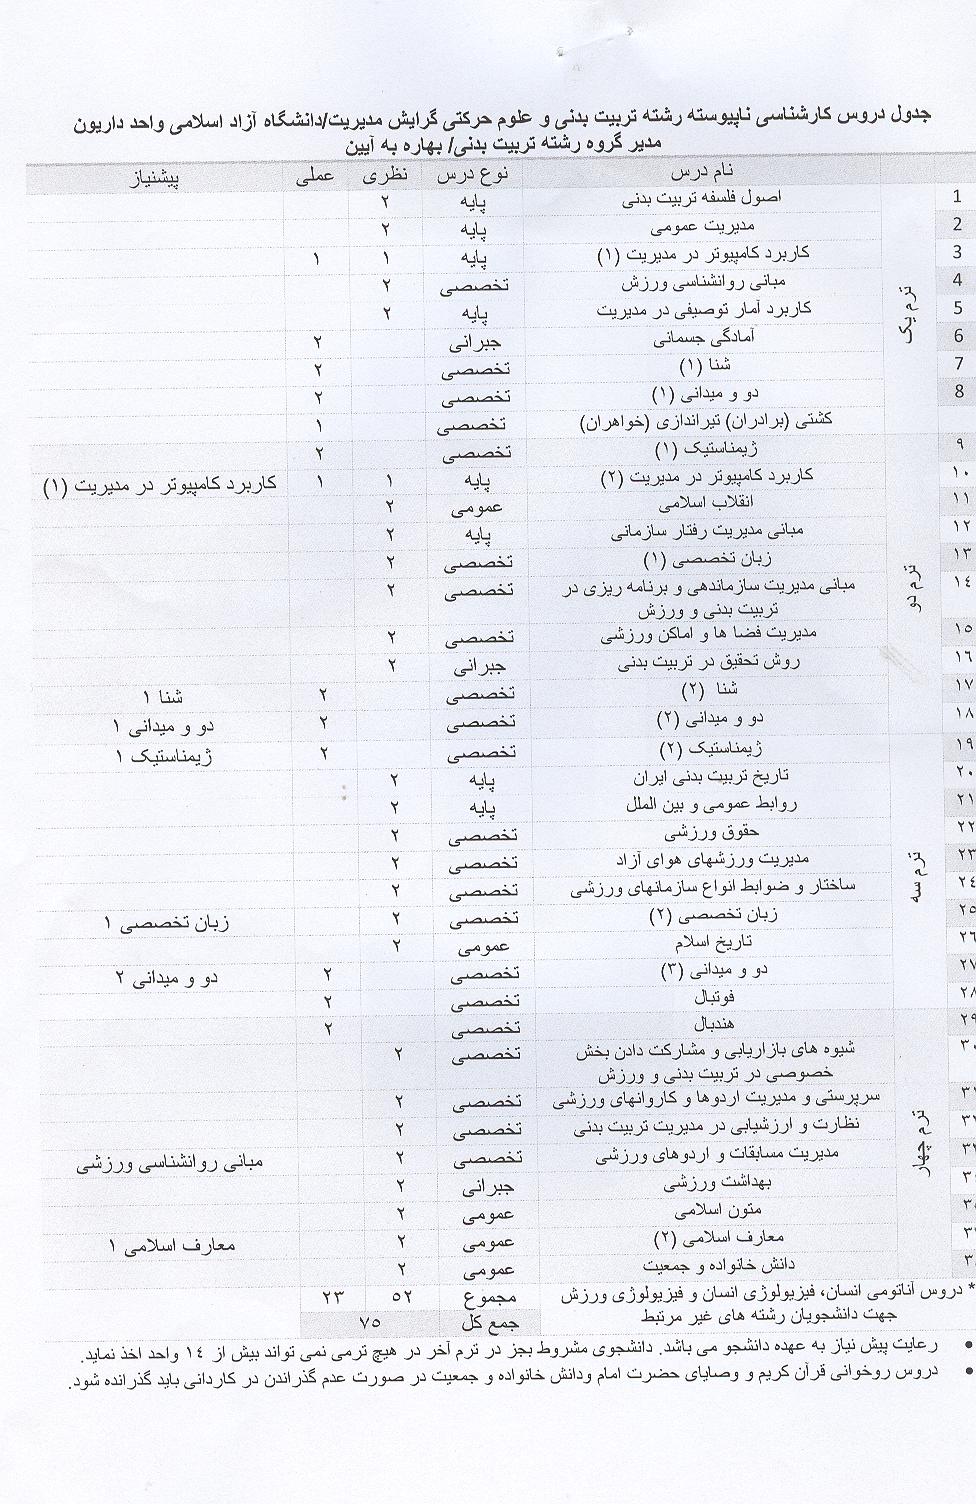 جدول دروس کارشناسی ناپیوسته رشته تربیت بدنی و علوم حرکتی گرایش مدیریت/دانشگاه آزاد اسلامی واحد داریون
مدیر گروه رشته تربیت بدنی/ بهاره به آیین
نام درس نوع درس نظری عملی پیشنیاز
ترم یک
1 اصول فلسفه تربیت بدنی پایه ۲
2 مدیریت عمومی پایه ۲
3 کاربرد کامپیوتر در مدیریت (۱) پایه ۱ ۱
4 مبانی روانشناسی ورزش تخصصی ۲
5 کاربرد آمار توصیفی در مدیریت پایه ۲
6 آمادگی جسمانی جبرانی ۲
7 شنا (۱) تخصصی ۲
8 دو و میدانی (۱) تخصصی ۲
کشتی (برادران) تیراندازی (خواهران) تخصصی ۱
ترم دو
۹ ژیمناستیک (۱) تخصصی ۲
۱۰ کاربرد کامپیوتر در مدیریت (۲) پایه ۱ ۱ کاربرد کامپیوتر در مدیریت (۱)
۱۱ انقلاب اسلامی عمومی ۲
۱۲ مبانی مدیریت رفتار سازمانی پایه ۲
۱۳ زبان تخصصی (۱) تخصصی ۲
۱٤ مبانی مدیریت سازماندهی و برنامه ریزی در تخصصی ۲
تربیت بدنی و ورزش
۱٥ مدیریت فضا ها و اماکن ورزشی تخصصی ۲
۱٦ روش تحقیق در تربیت بدنی جبرانی ۲
۱۷ شنا (۲) تخصصی ۲ شنا ۱
۱۸ دو و میدانی (۲) تخصصی ۲ دو و میدانی ۱
ترم سه
۱۹ ژیمناستیک (۲) تخصصی ۲ ژیمناستیک ۱
۲۰ تاریخ تربیت بدنی ایران پایه ۲
۲۱ روابط عمومی و بین الملل پایه ۲
۲۲ حقوق ورزشی تخصصی ۲
۲۳ مدیریت ورزشهای هوای آزاد تخصصی ۲
۲٤ ساختار و ضوابط انواع سازمانهای ورزشی تخصصی ۲
۲٥ زبان تخصصی (۲) تخصصی ۲ زبان تخصصی ۱
۲٦ تاریخ اسلام عمومی ۲
۲۷ دو و میدانی (۳) تخصصی ۲ دو و میدانی ۲
۲۸ فوتبال تخصصی ۲
ترم چهار
۲۹ هندبال تخصصی ۲
۳۰ شیوه های بازاریابی و مشارکت دادن بخش تخصصی ۲
خصوصی در تربیت بدنی و ورزش
سرپرستی و مدیریت اردوها و کاروانهای ورزشی تخصصی ۲
نظارت و ارزشیابی در مدیریت تربیت بدنی تخصصی ۲
مدیریت مسابقات و اردوهای ورزشی تخصصی ۲ مبانی روانشناسی ورزشی
بهداشت ورزشی جبرانی ۲
متون اسلامی عمومی ۲
معارف اسلامی (۲) عمومی ۲ معارف اسلامی ۱
دانش خانواده و جمعیت عمومی ۲
* دروس آناتومی انسان، فیزیولوژی انسان و فیزیولوژی ورزش مجموع ٥۲ ۲۳
جهت دانشجویان رشته های غیر مرتبط جمع کل ۷٥
• رعایت پیش نیاز به عهده دانشجو می باشد. دانشجوی مشروط بجز در ترم آخر در هیچ ترمی نمی تواند بیش از ۱٤ واحد اخذ نماید.
• دروس روخوانی قرآن کریم و وصایای حضرت امام ودانش خانواده و جمعیت در صورت عدم گذراندن در کاردانی باید گذرانده شود.